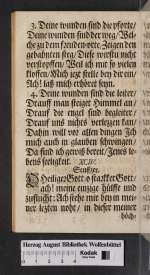 3. Deine wunden sind die pforte/
Deine wunden sind der weg/ Wel-
che zu dem freudenorte Zeigen den
gebahnten steg/ Diese wollst nicht
verstopffen/ Weil ich mit so vielen
klopffen/ Mich jetzt stelle bey dir ein/
Ach! laß mich erhöret seyn.
4. Deine wunden sind die leiter/
Drauff man steiget Himmel an/
Drauf die engel sind begleiter/
Drauf uns nichts verletzen kan/
Dahin will vor allen dingen Ich
mich auch im glauben schwingen/
Da find ich gewiß bereit/ Jenes le-
bens seeligkeit.
XLIV.
Seuffzer.
O Heiliger Gott/ o starcker Gott/
ach! meine einzige hülffe und
zuflucht: Ach stehe mir bey in mei-
ner letzten noht/ in dieser meiner
höch-
Herzog August Bibliothek Wolfenbüttel